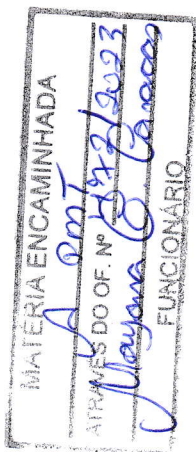 MATÉRIA ENCAMINHADA
A PMT
ATRAVÉS DO OF. Nº 472/2023
Mayana C. Caracas
FUNCIONÁRIO